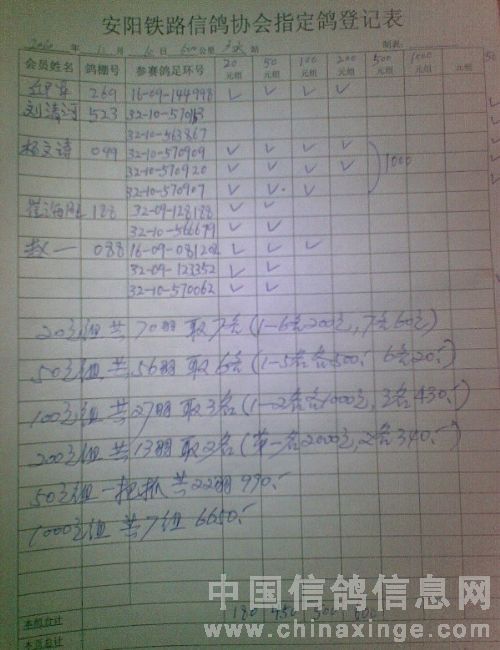 安阳铁路信鸽协会指定鸽登记表
年 11 月 6 日 500 公里 站 制表：
会员姓名 鸽棚号 参赛鸽足环号 20元组 50元组 100元组 200元组 500元组 1000元组 元组
269 16-09-144998 ✓ ✓ ✓ ✓
刘清河 523 32-10-
32-10-563867
杨文詩 099 32-10-570909 ✓ ✓ ✓ ✓
32-10-570920 ✓ ✓ ✓ ✓ 1000
32-10-570907 ✓ ✓ ✓ ✓
188 32-09-128188 ✓ ✓
32-10-566679 ✓ ✓
赵一 088 16-09-081208 ✓ ✓ ✓
32-09-123352 ✓ ✓
32-10-570062 ✓ ✓
20元组 共 70羽 取7名 (1-6名200元, 7名60元)
50元组 共 56羽 取6名 (1-5名各500.- 6名20.-)
100元组 共27羽 取3名 (1-2名各1000元, 3名430.-)
200元组 共13羽 取2名 (第一名2000元, 2名340.-)
50元组 一把抓 共22羽 990.-
1000元组 共7组 6650.-
本组合计 180 450 500 600
本页总计
中国信鸽信息网
www.chinaxinge.com